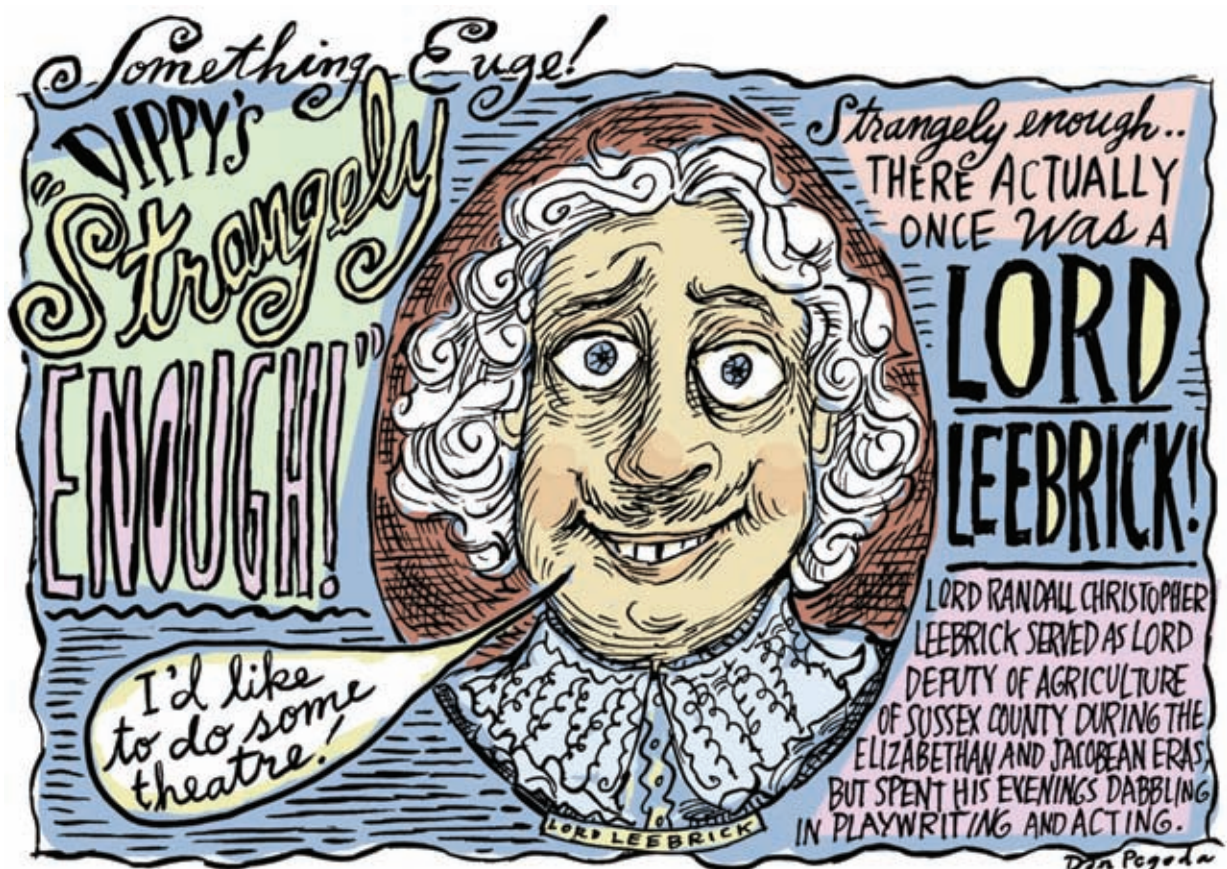 Something Euge!
DIPPY'S
"Strangely
ENOUGH!"
I'd like
to do some
theatre!
LORD LEEBRICK
Strangely enough..
THERE ACTUALLY
ONCE Was A
LORD
LEEBRICK!
LORD RANDALL CHRISTOPHER
LEEBRICK SERVED AS LORD
DEPUTY OF AGRICULTURE
OF SUSSEX COUNTY DURING THE
ELIZABETHAN AND JACOBEAN ERAS,
BUT SPENT HIS EVENINGS DABBLING
IN PLAYWRITING AND ACTING.
Dan Pegoda